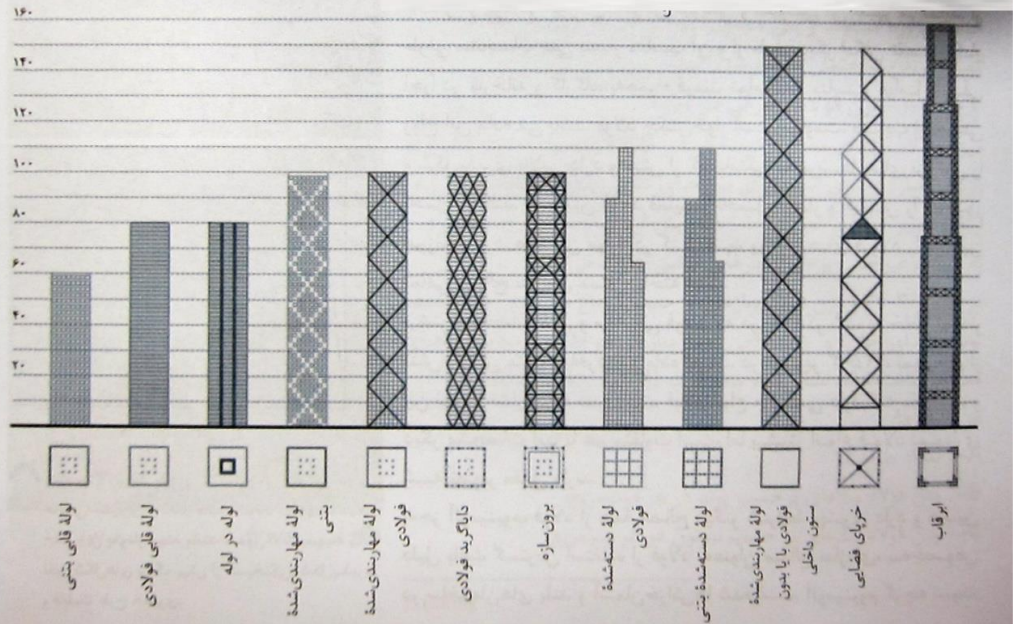 ۱۶۰
۱۴۰
۱۲۰
۱۰۰
۸۰
۶۰
۴۰
۲۰
لولهٔ قابی بتنی
لولهٔ قابی فولادی
لوله در لوله
لولهٔ مهاربندی‌شدهٔ
بتنی
لولهٔ مهاربندی‌شدهٔ
فولادی
دایاگرید فولادی
برون‌سازه
لولهٔ دسته‌شدهٔ
فولادی
لولهٔ دسته‌شدهٔ بتنی
لولهٔ مهاربندی‌شدهٔ
فولادی با یا بدون
ستون داخلی
خرپای فضایی
ابرقاب